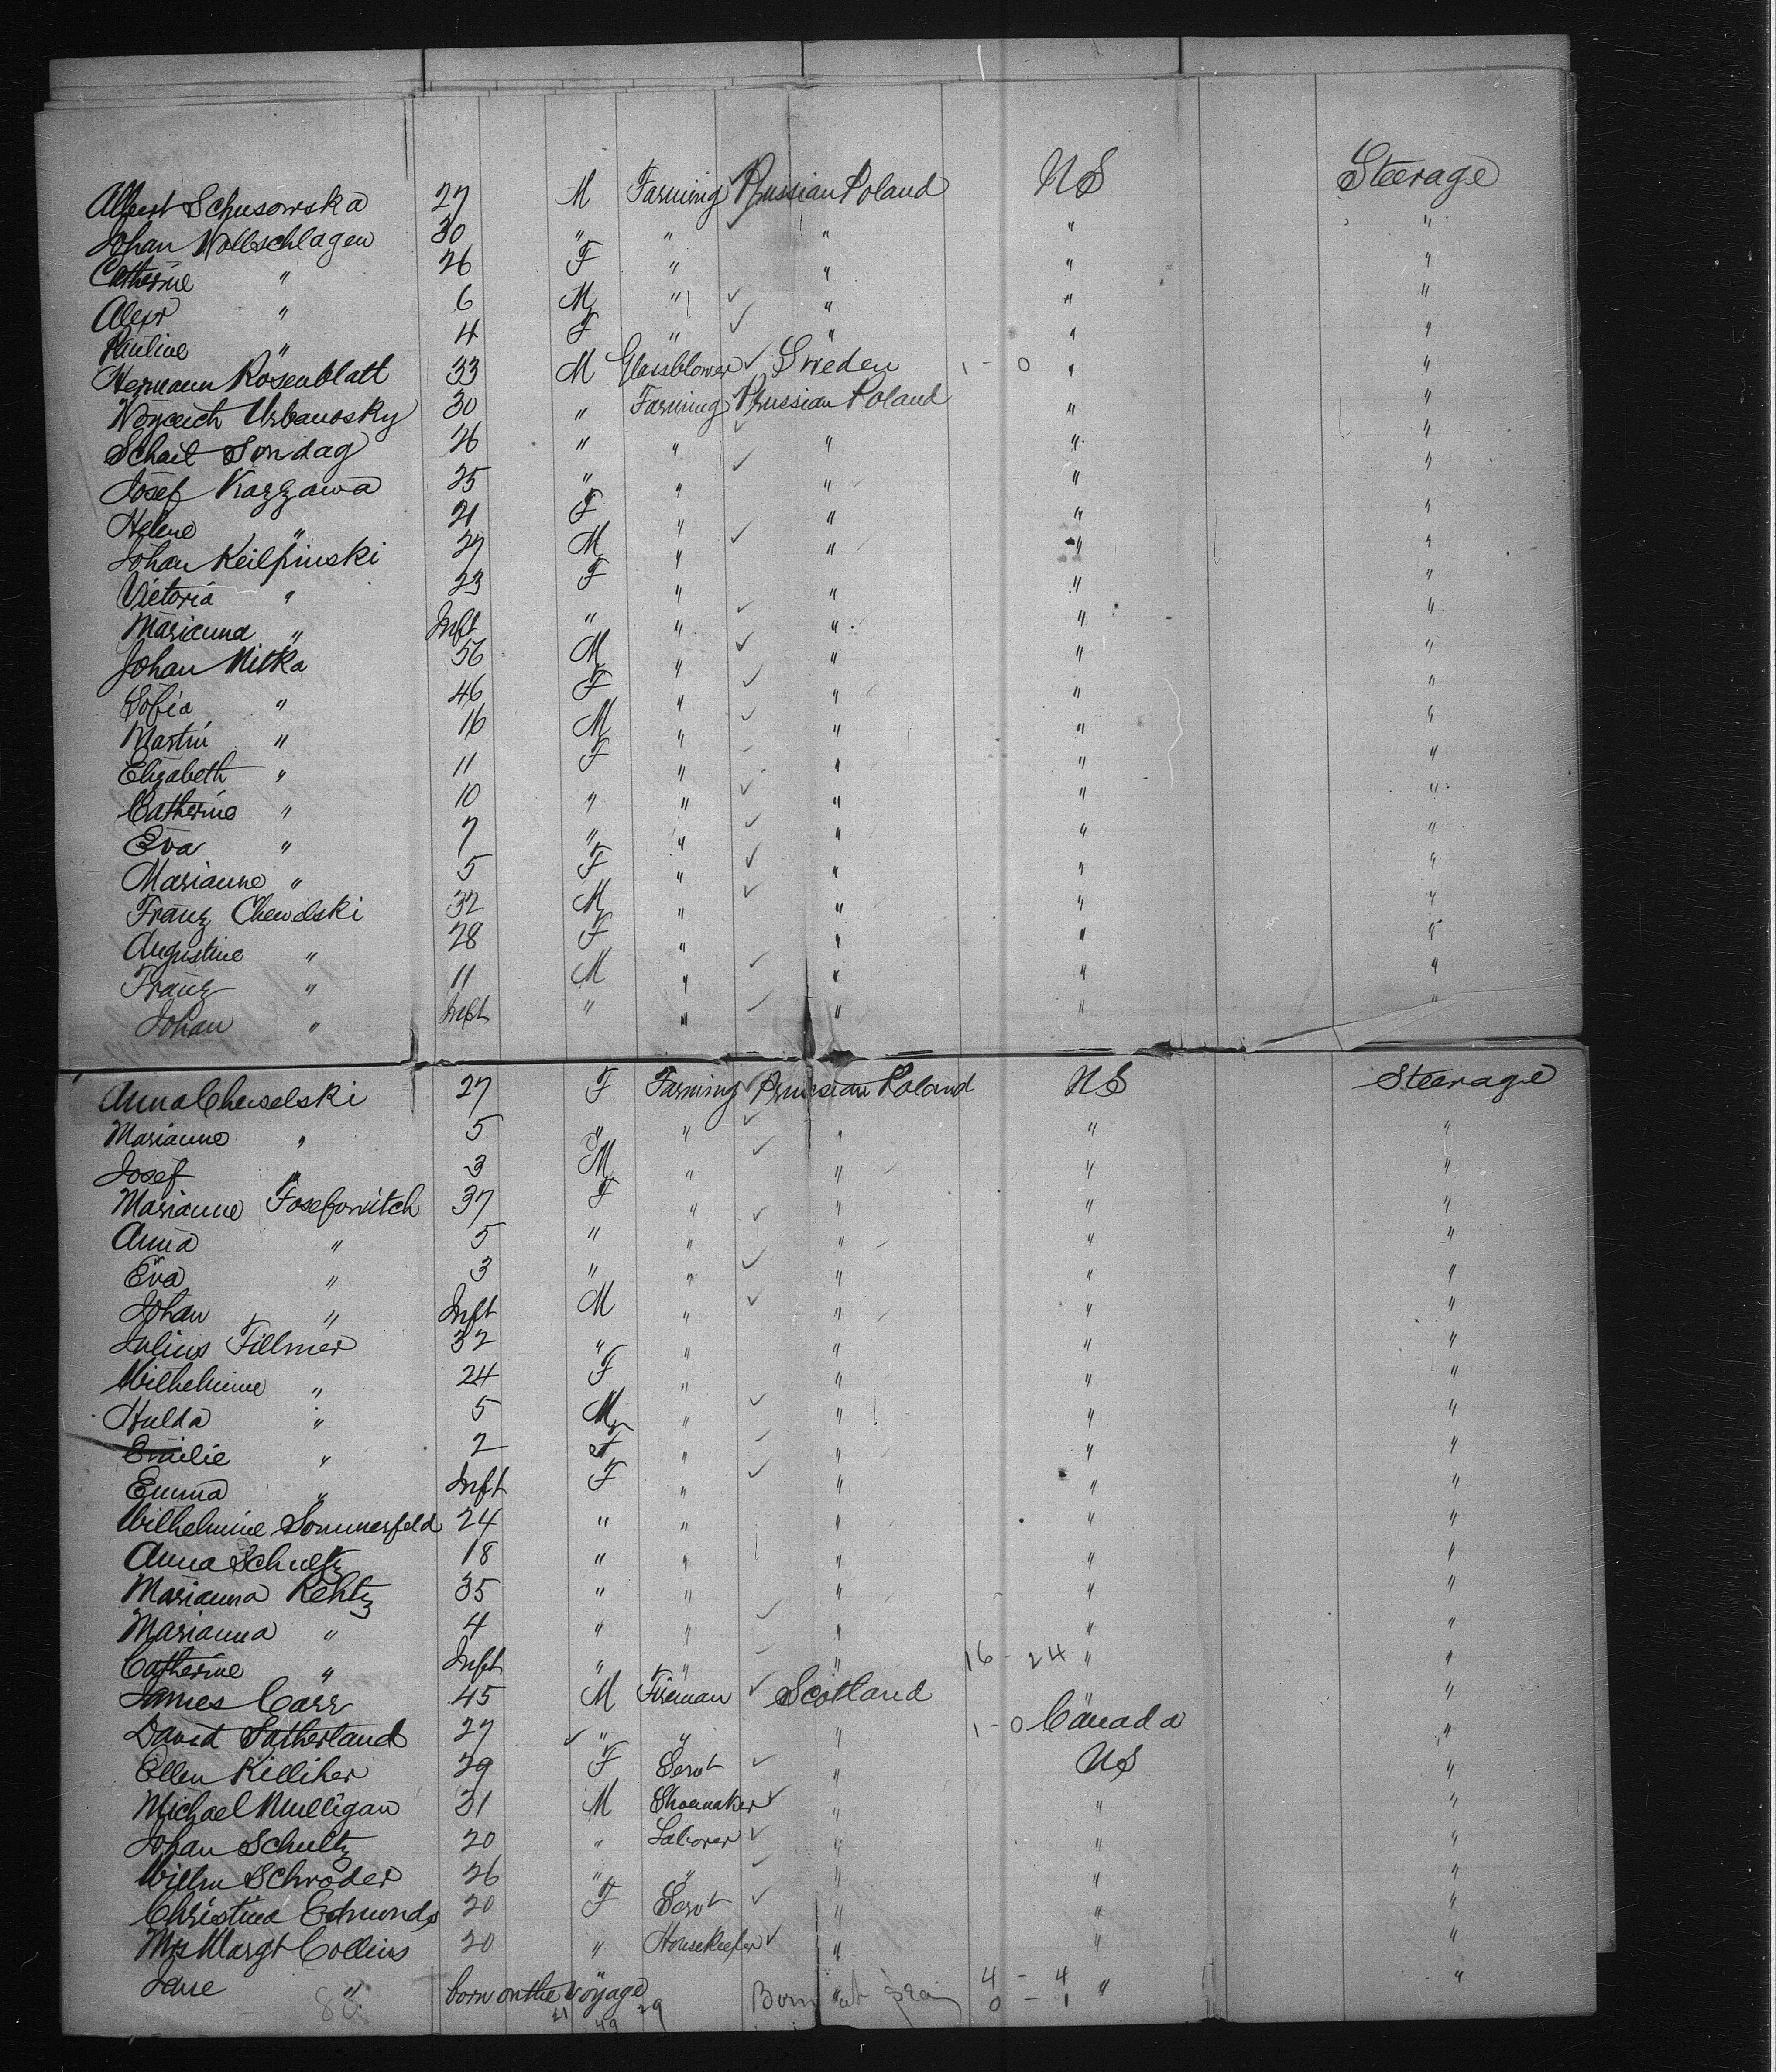 Albert Schusowska 27 M Farming Prussian Poland US Steerage
Johan Wollschlagen 30 " " " " "
Catherine " 26 F " " " "
Alexr " 6 M " " " "
Pauline " 4 F " " " "
Hermann Rosenblatt 33 M Glassblower Sweden 1 - 0 " "
Woyceich Urbanosky 30 " Farming Prussian Poland " "
Schail Sondag 26 " " " " "
Josef Kazzawa 25 " " " " "
Helene " 21 F " " " "
Johan Keilpinski 27 M " " " "
Victoria " 23 F " " " "
Marianna " Inft " " " " "
Johan Mitka 56 M " " " "
Sofia " 46 F " " " "
Martin " 16 M " " " "
Elizabeth " 11 F " " " "
Catherine " 10 " " " " "
Eva " 7 " " " " "
Marianne " 5 F " " " "
Franz Chewdski 32 M " " " "
Augustine " 28 F " " " "
Franz " 11 M " " " "
Johan " Inft " " " " "
Anna Cheiselski 27 F Farming Prussian Poland US Steerage
Marianne " 5 " " " " "
Josef " 3 M " " " "
Marianne Josefowitch 37 F " " " "
Anna " 5 " " " " "
Eva " 3 " " " " "
Johan " Inft M " " " "
Julius Fillmer 32 " " " " "
Wilhelmine " 24 F " " " "
Hulda " 5 M " " " "
Emilie " 2 F " " " "
Emma " Inft F " " " "
Wilhelmine Sommerfeld 24 " " " " "
Anna Schultz 18 " " " " "
Marianna Rehtz 35 " " " " "
Marianna " 4 " " " " "
Catherine " Inft " " " 16 - 24 " "
James Carr 45 M Fireman Scotland "
David Sutherland 27 " " " 1 - 0 Canada "
Ellen Killiher 29 F Servt " US "
Michael Mulligan 31 M Shoemaker " " "
Johan Schultz 20 " Laborer " " "
Wilhm Schroder 26 " " " " "
Christina Edmunds 20 F Servt " " "
Mrs Margt Collins 20 " Housekeeper " " "
Jane " born on the voyage " Born at sea 4 - 4 " "
88 21 49 29 0 - 1